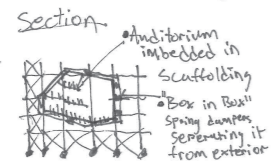 Section
•Auditorium
imbedded in
scaffolding
•"Box in Box"
spring dampers
seperating it
from exterior